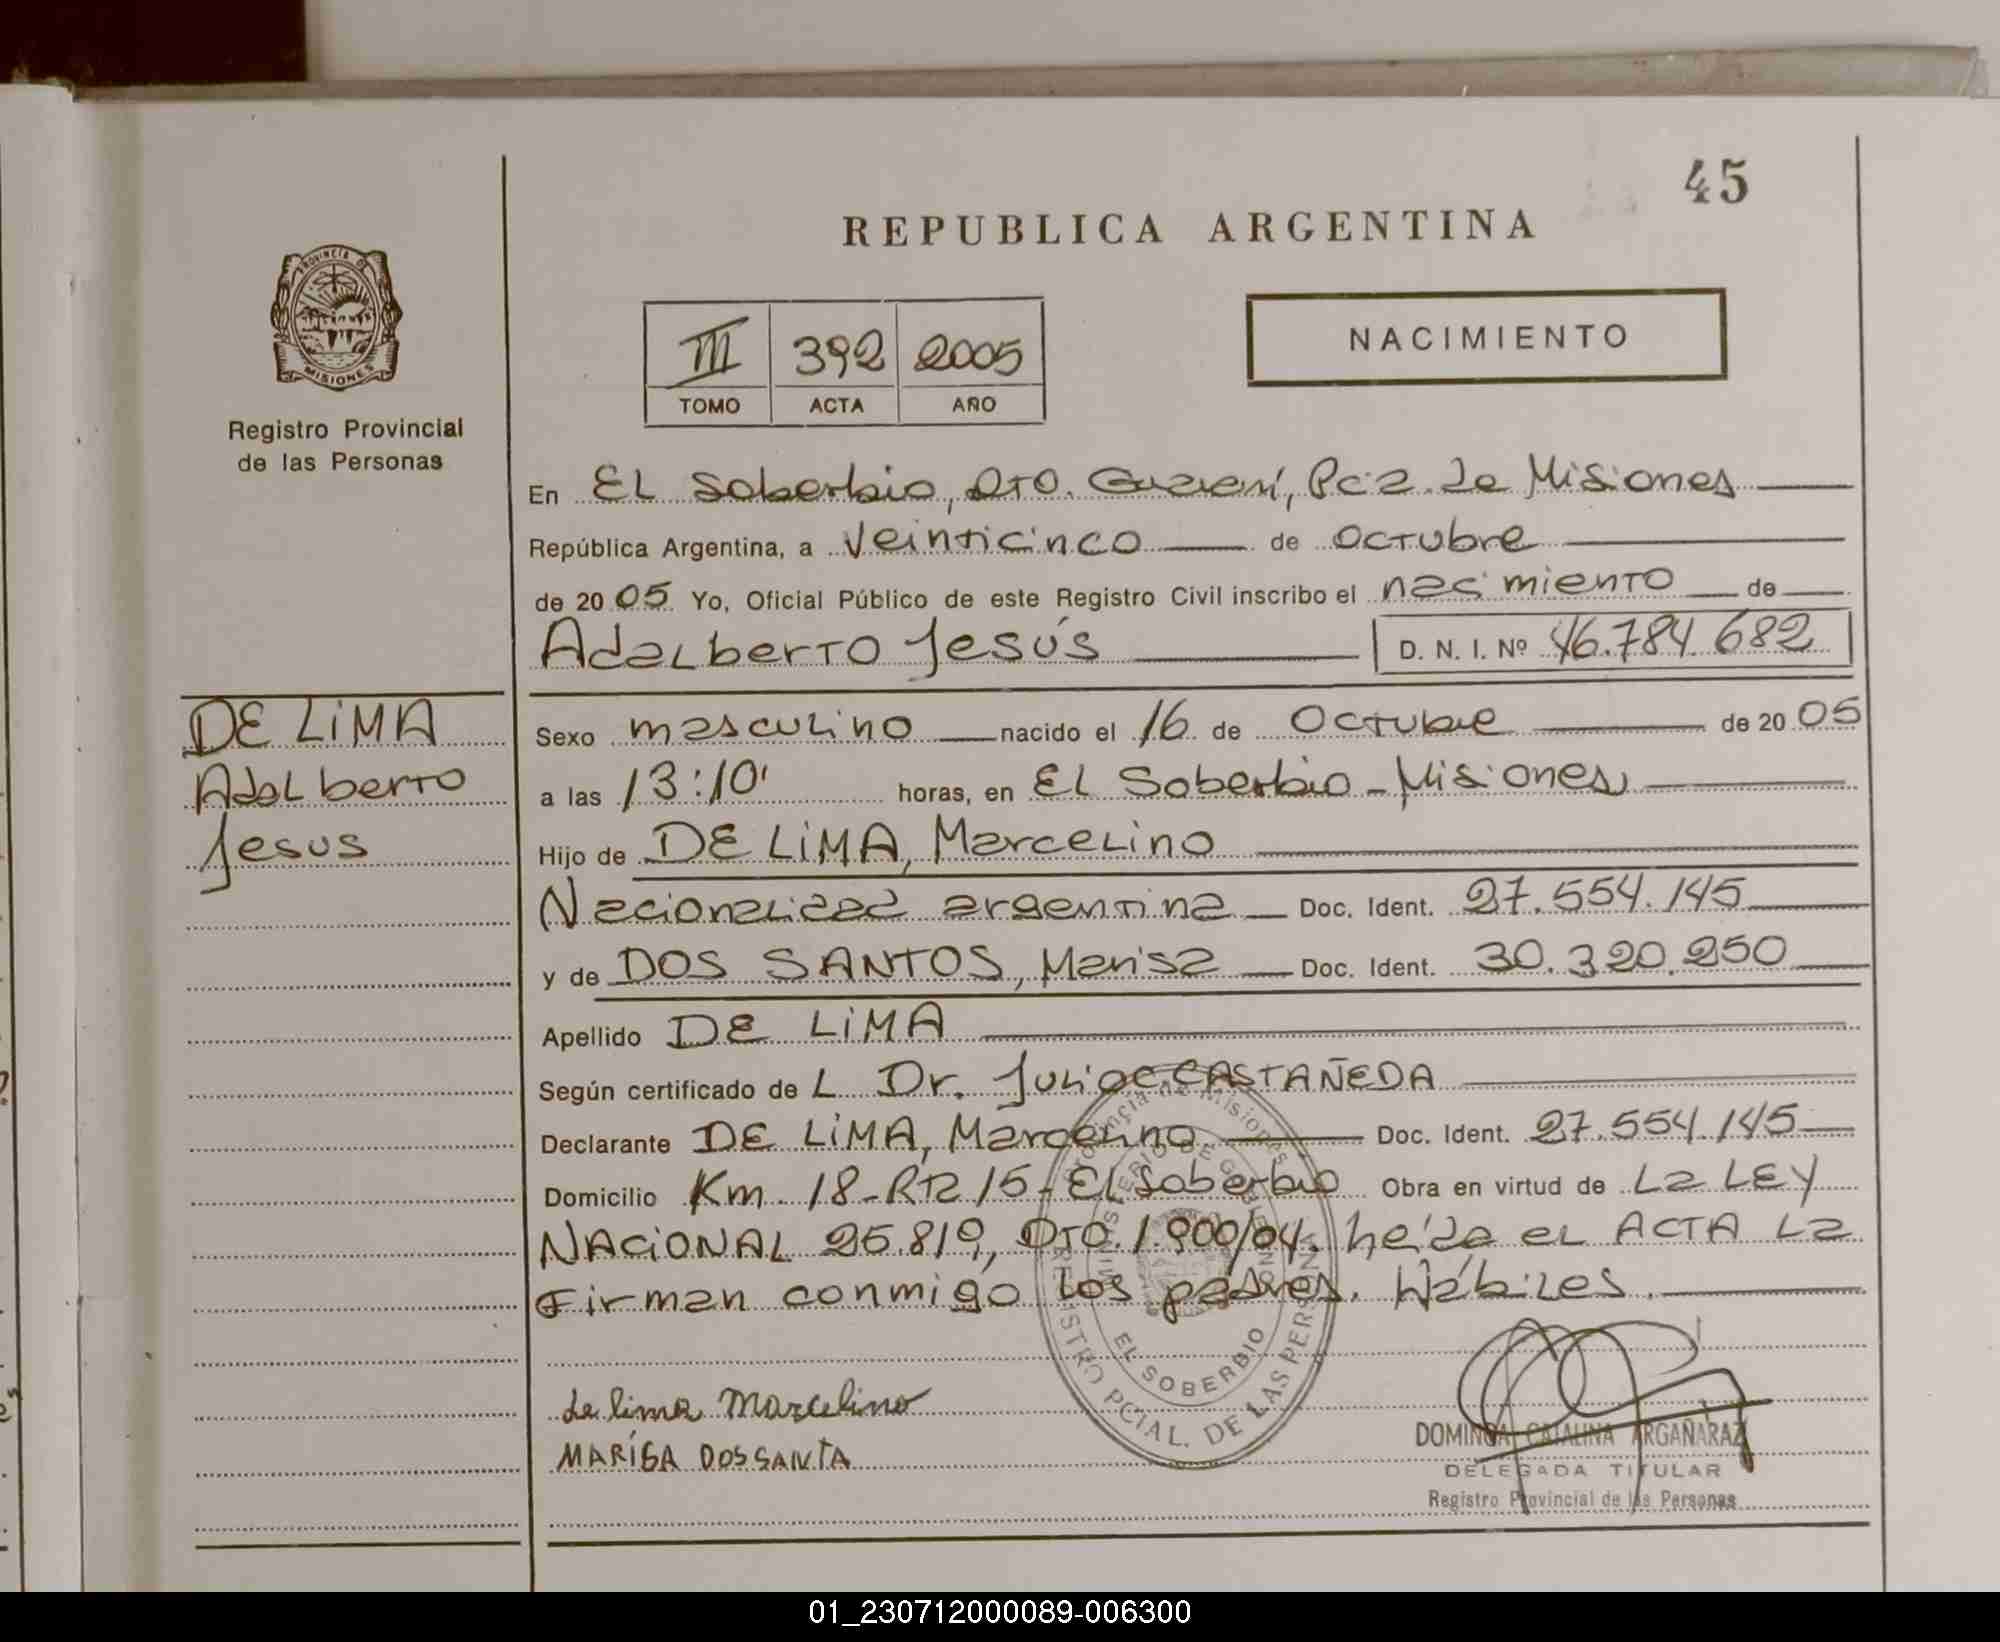 45
REPUBLICA ARGENTINA
PROVINCIA DE
MISIONES
Registro Provincial
de las Personas
III 392 2005
TOMO ACTA AÑO
NACIMIENTO
En EL Soberbio, DTO. Guaraní, Pcia. de Misiones
República Argentina, a Veinticinco de octubre
de 2005 Yo, Oficial Público de este Registro Civil inscribo el nacimiento de
Adalberto Jesús D. N. I. Nº 46.784.682
DE LIMA
Adalberto
Jesus
Sexo masculino nacido el 16 de Octubre de 2005
a las 13:10' horas, en EL Soberbio - Misiones
Hijo de DE LIMA, Marcelino
Nacionalidad argentina Doc. Ident. 27.554.145
y de DOS SANTOS, Marisa Doc. Ident. 30.320.250
Apellido DE LIMA
Según certificado de L Dr. Julio C. CASTAÑEDA
Declarante DE LIMA, Marcelino Doc. Ident. 27.554.145
Domicilio Km. 18-RP2 15- El Soberbio Obra en virtud de La LEY
NACIONAL 25.819, DTO. 1.900/04. Leída el ACTA La
Firman conmigo los padres. Hábiles.
Provincia de Misiones
MINISTERIO DE GOBIERNO
EL SOBERBIO
REGISTRO PCIAL. DE LAS PERSONAS
de lima Marcelino
MARÍSA DOS SANTA
DOMINGA CATALINA ARGAÑARAZ
DELEGADA TITULAR
Registro Provincial de las Personas
01_230712000089-006300